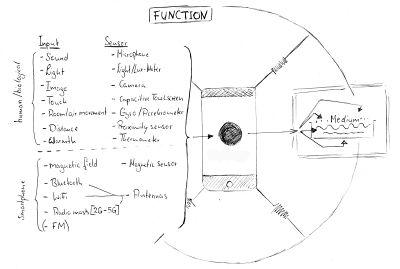 FUNCTION
Input Sensor
- Sound - Microphone
- Light - Light/Lux-Meter
- Image - Camera
- Touch - Capacitive Touchscreen
- Position/movement - Gyro/Accelerometer
- Distance - Proximity sensor
- Warmth - Thermometer
human/biological
- Magnetic field - Magnetic sensor
- Bluetooth
- WiFi - Antennas
- Radio mash [2G-5G]
(- FM)
smartphone
Medium